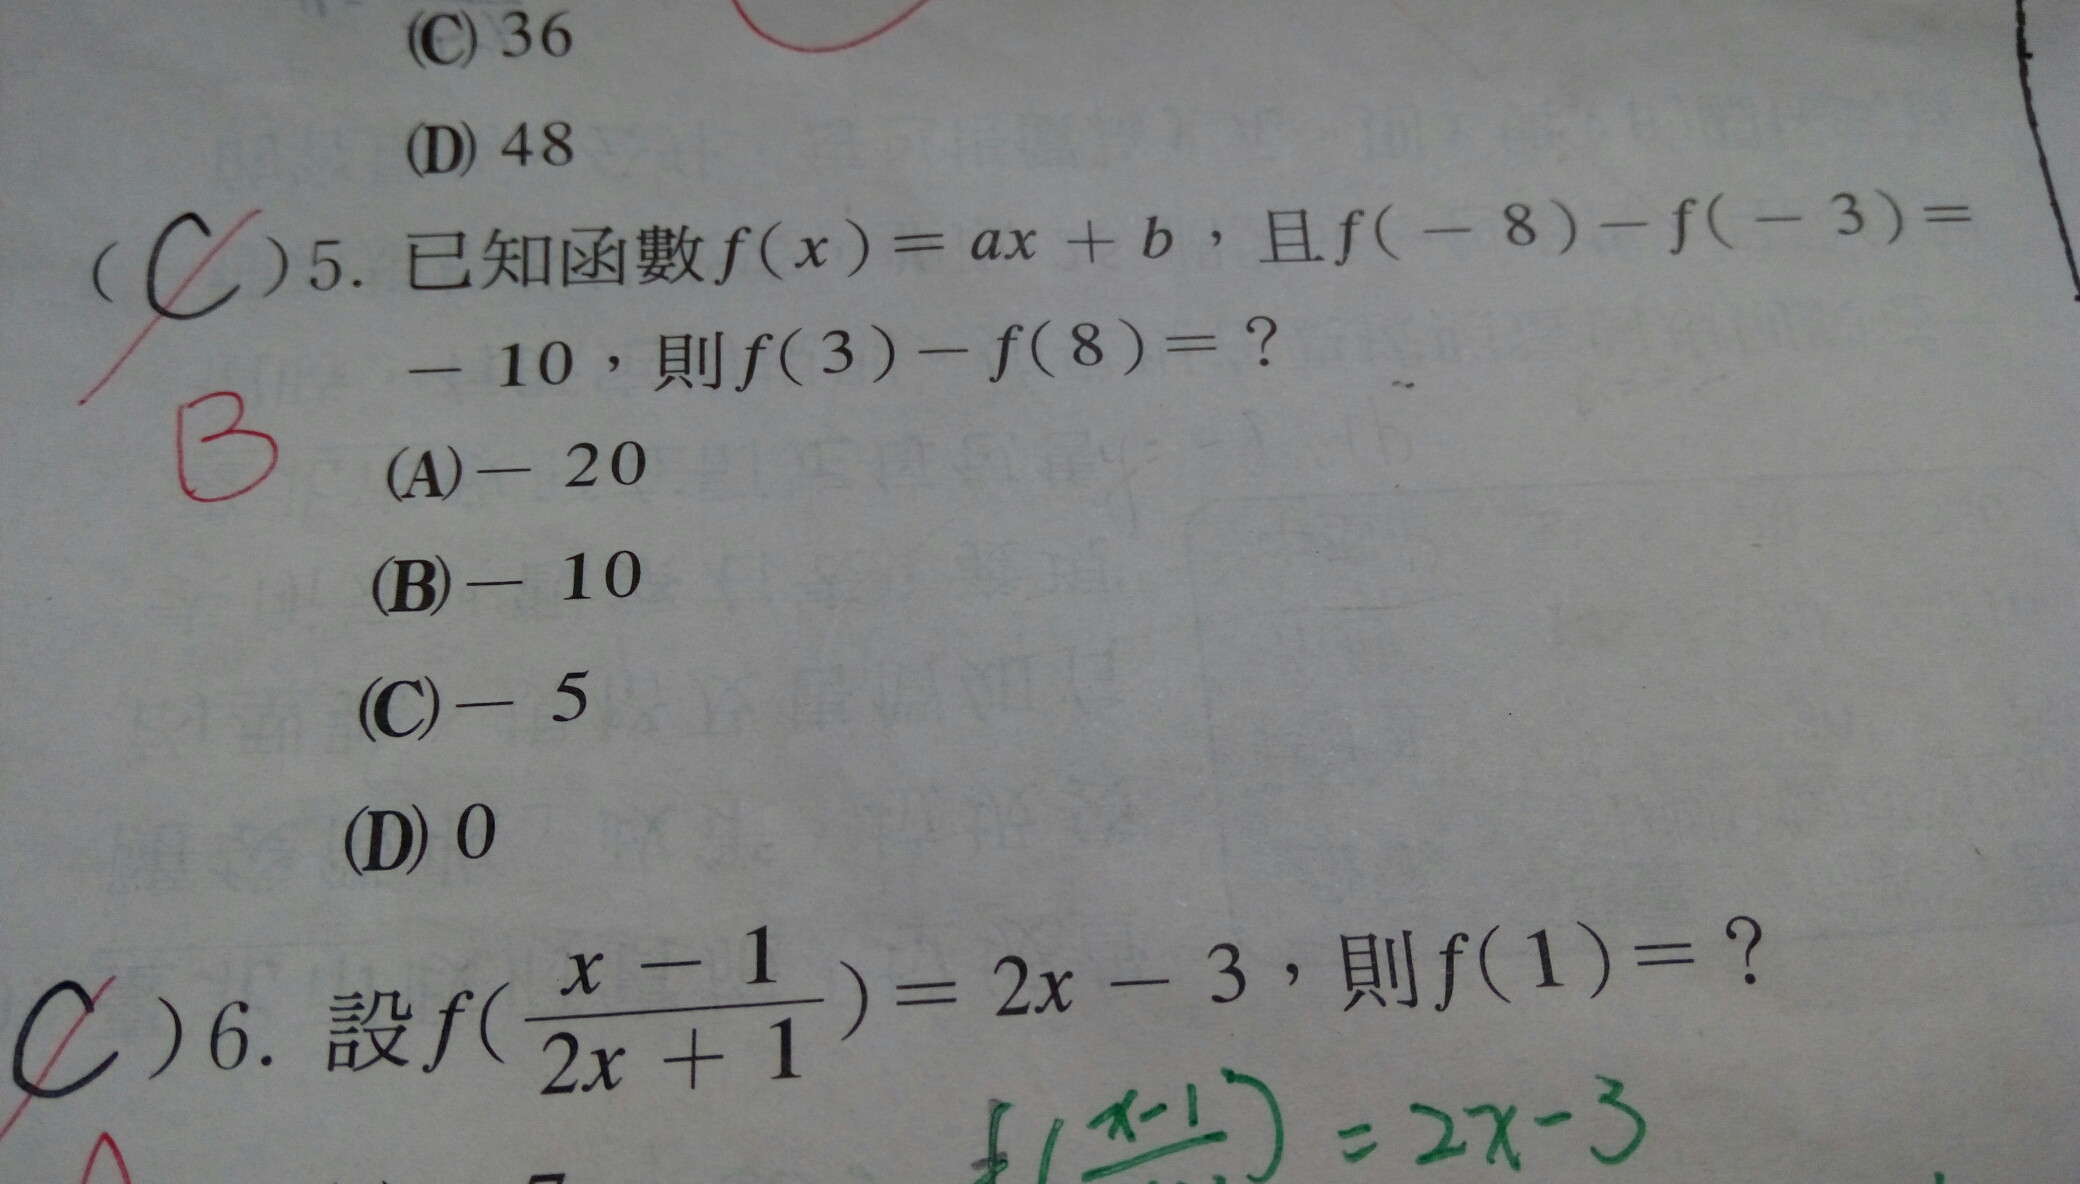 (C) 36
(D) 48
( C ) 5. 已知函數 f(x) = ax + b，且 f(－8)－f(－3)＝
－10，則 f(3)－f(8)＝？
B
(A)－20
(B)－10
(C)－5
(D) 0
C ) 6. 設 f(\frac{x－1}{2x＋1})＝2x－3，則 f(1)＝？
f(x-1) = 2x-3